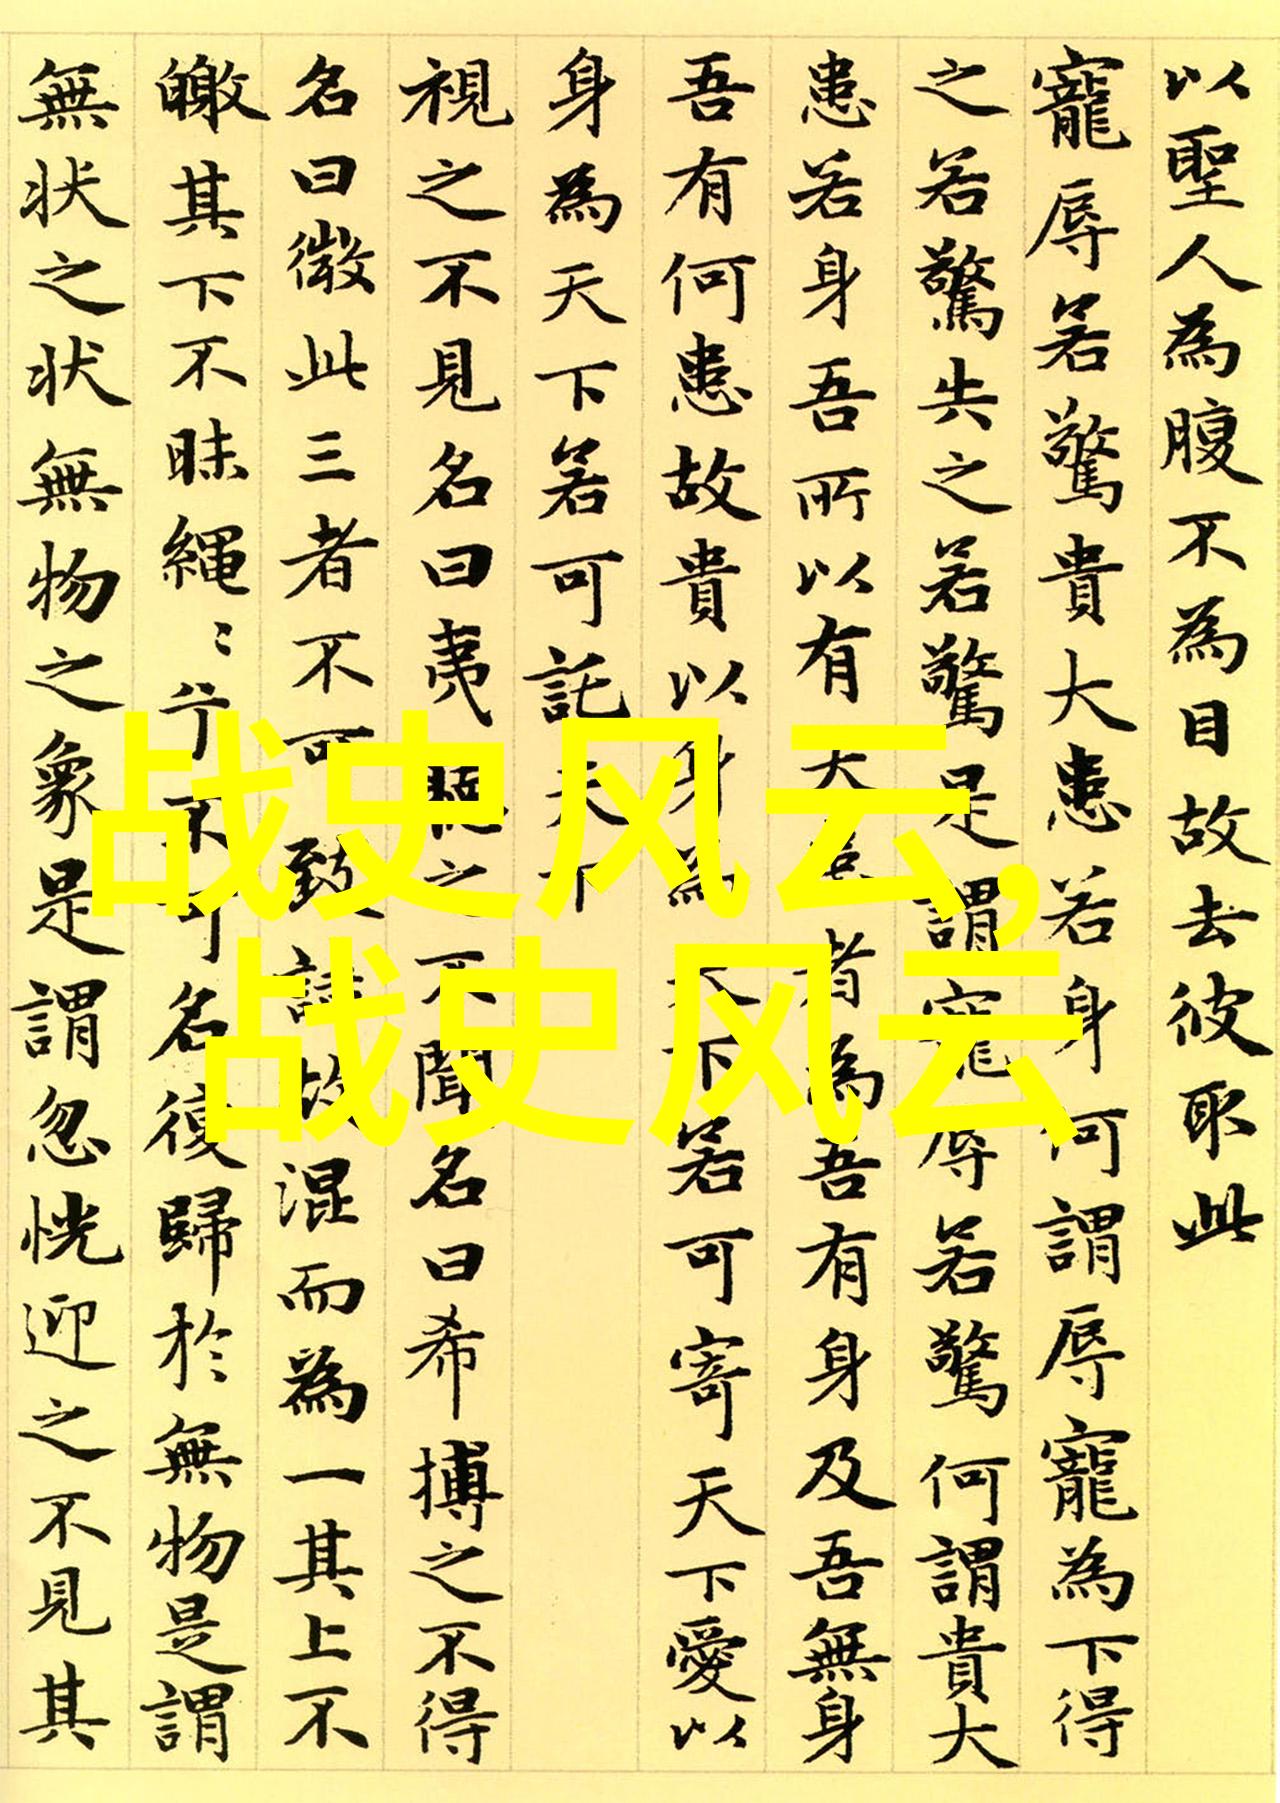 以聖人為腹不為目故去彼取此
寵辱若驚貴大患若身何謂辱寵為下得
之若驚失之若驚是謂寵辱若驚何謂貴大
患若身吾所以有大患者為吾有身及吾無身
吾有何患故貴以身為天下若可寄天下愛以
身為天下若可託天下
視之不見名曰夷聽之不聞名曰希搏之不得
名曰微此三者不可致詰故混而為一其上不
皦其下不昧繩〻兮不可名復歸於無物是謂
無状之状無物之象是謂忽恍迎之不見其
战史风云,
战史风云